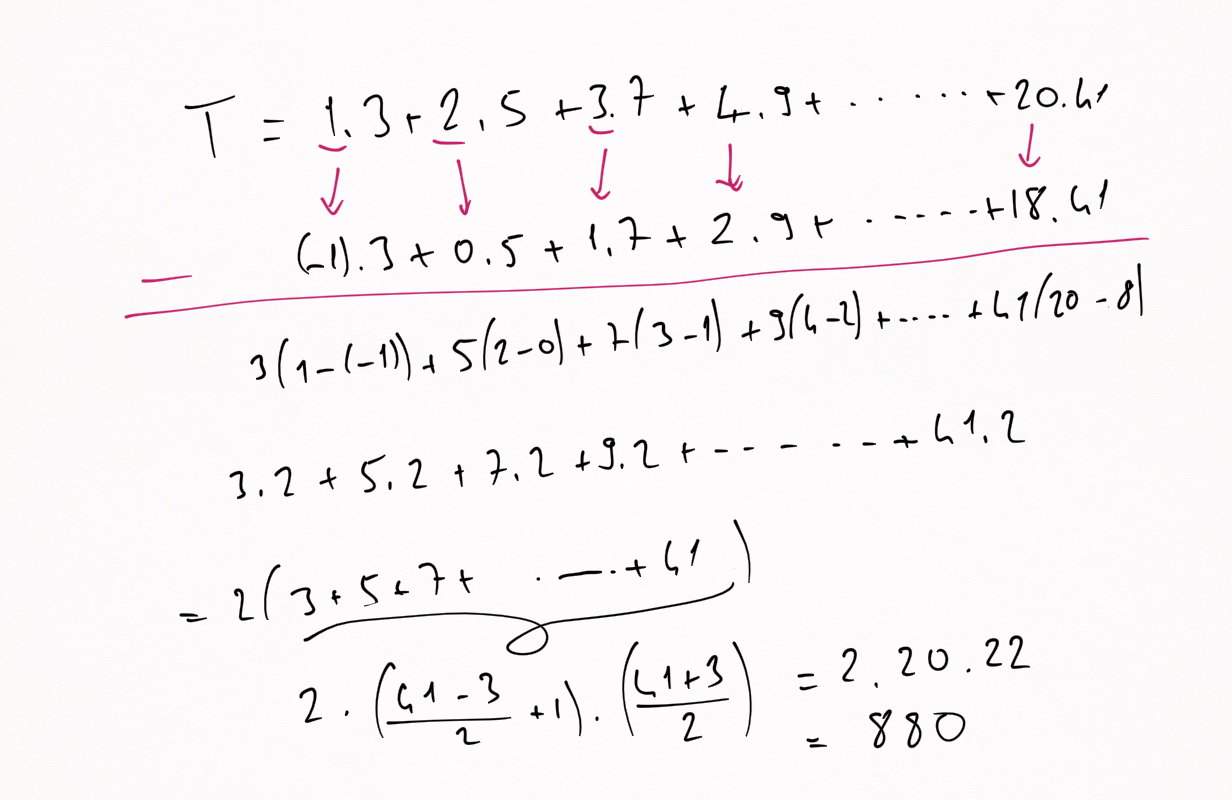 T = 1.3 + 2.5 + 3.7 + 4.9 + ...... + 20.41
(-1).3 + 0.5 + 1.7 + 2.9 + ...... + 18.41
3(1-(-1)) + 5(2-0) + 7(3-1) + 9(4-2) + ..... + 41(20-8)
3.2 + 5.2 + 7.2 + 9.2 + ------ + 41.2
= 2(3+5+7+ ...... + 41)
2 . ((41-3)/2 + 1) . ((41+3)/2) = 2.20.22
= 880